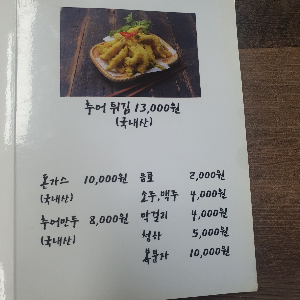 추어 튀김 13,000원
(국내산)
돈가스 10,000원
(국내산)
추어만두 8,000원
(국내산)
음료 2,000원
소주,맥주 4,000원
막걸리 4,000원
청하 5,000원
복분자 10,000원